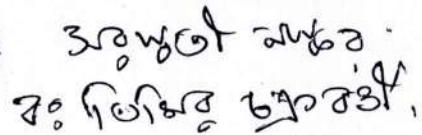 অরুন্ধতী
বঃ তিমির চক্রবর্তী,